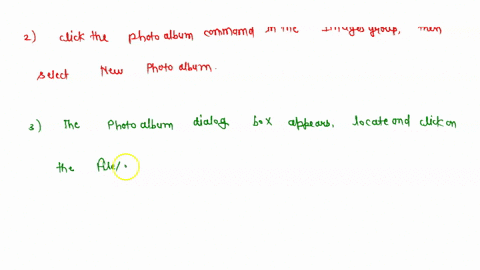 2) click the photo album command in the Images group, then
select New Photo album.
3) The Photo album dialog box appears, locate and click on
the File/